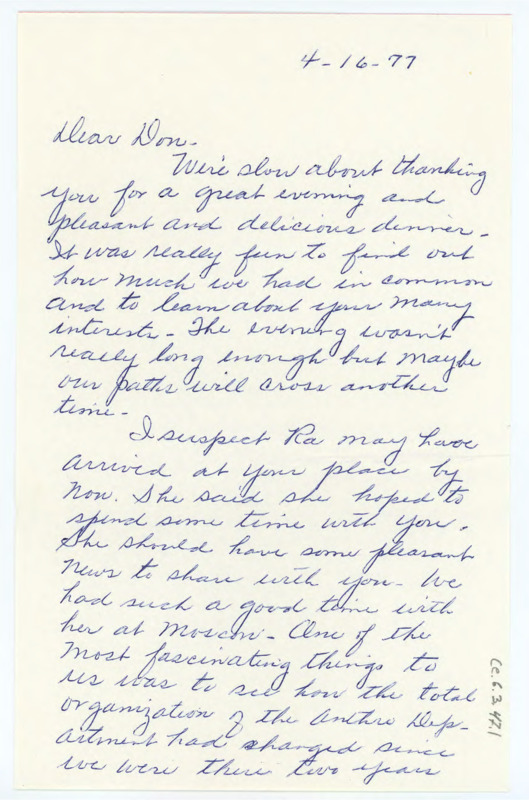 4-16-77
Dear Don-
We're slow about thanking
you for a great evening and
pleasant and delicious dinner-
It was really fun to find out
how much we had in common
and to learn about your many
interests- The evening wasn't
really long enough but maybe
our paths will cross another
time-
I suspect Ra may have
arrived at your place by
now. She said she hoped to
spend some time with you.
She should have some pleasant
news to share with you- We
had such a good time with
her at Moscow- One of the
most fascinating things to
us was to see how the total
organization of the Anthro Dep-
artment had changed since
we were there two years
cc.6.3.47.1